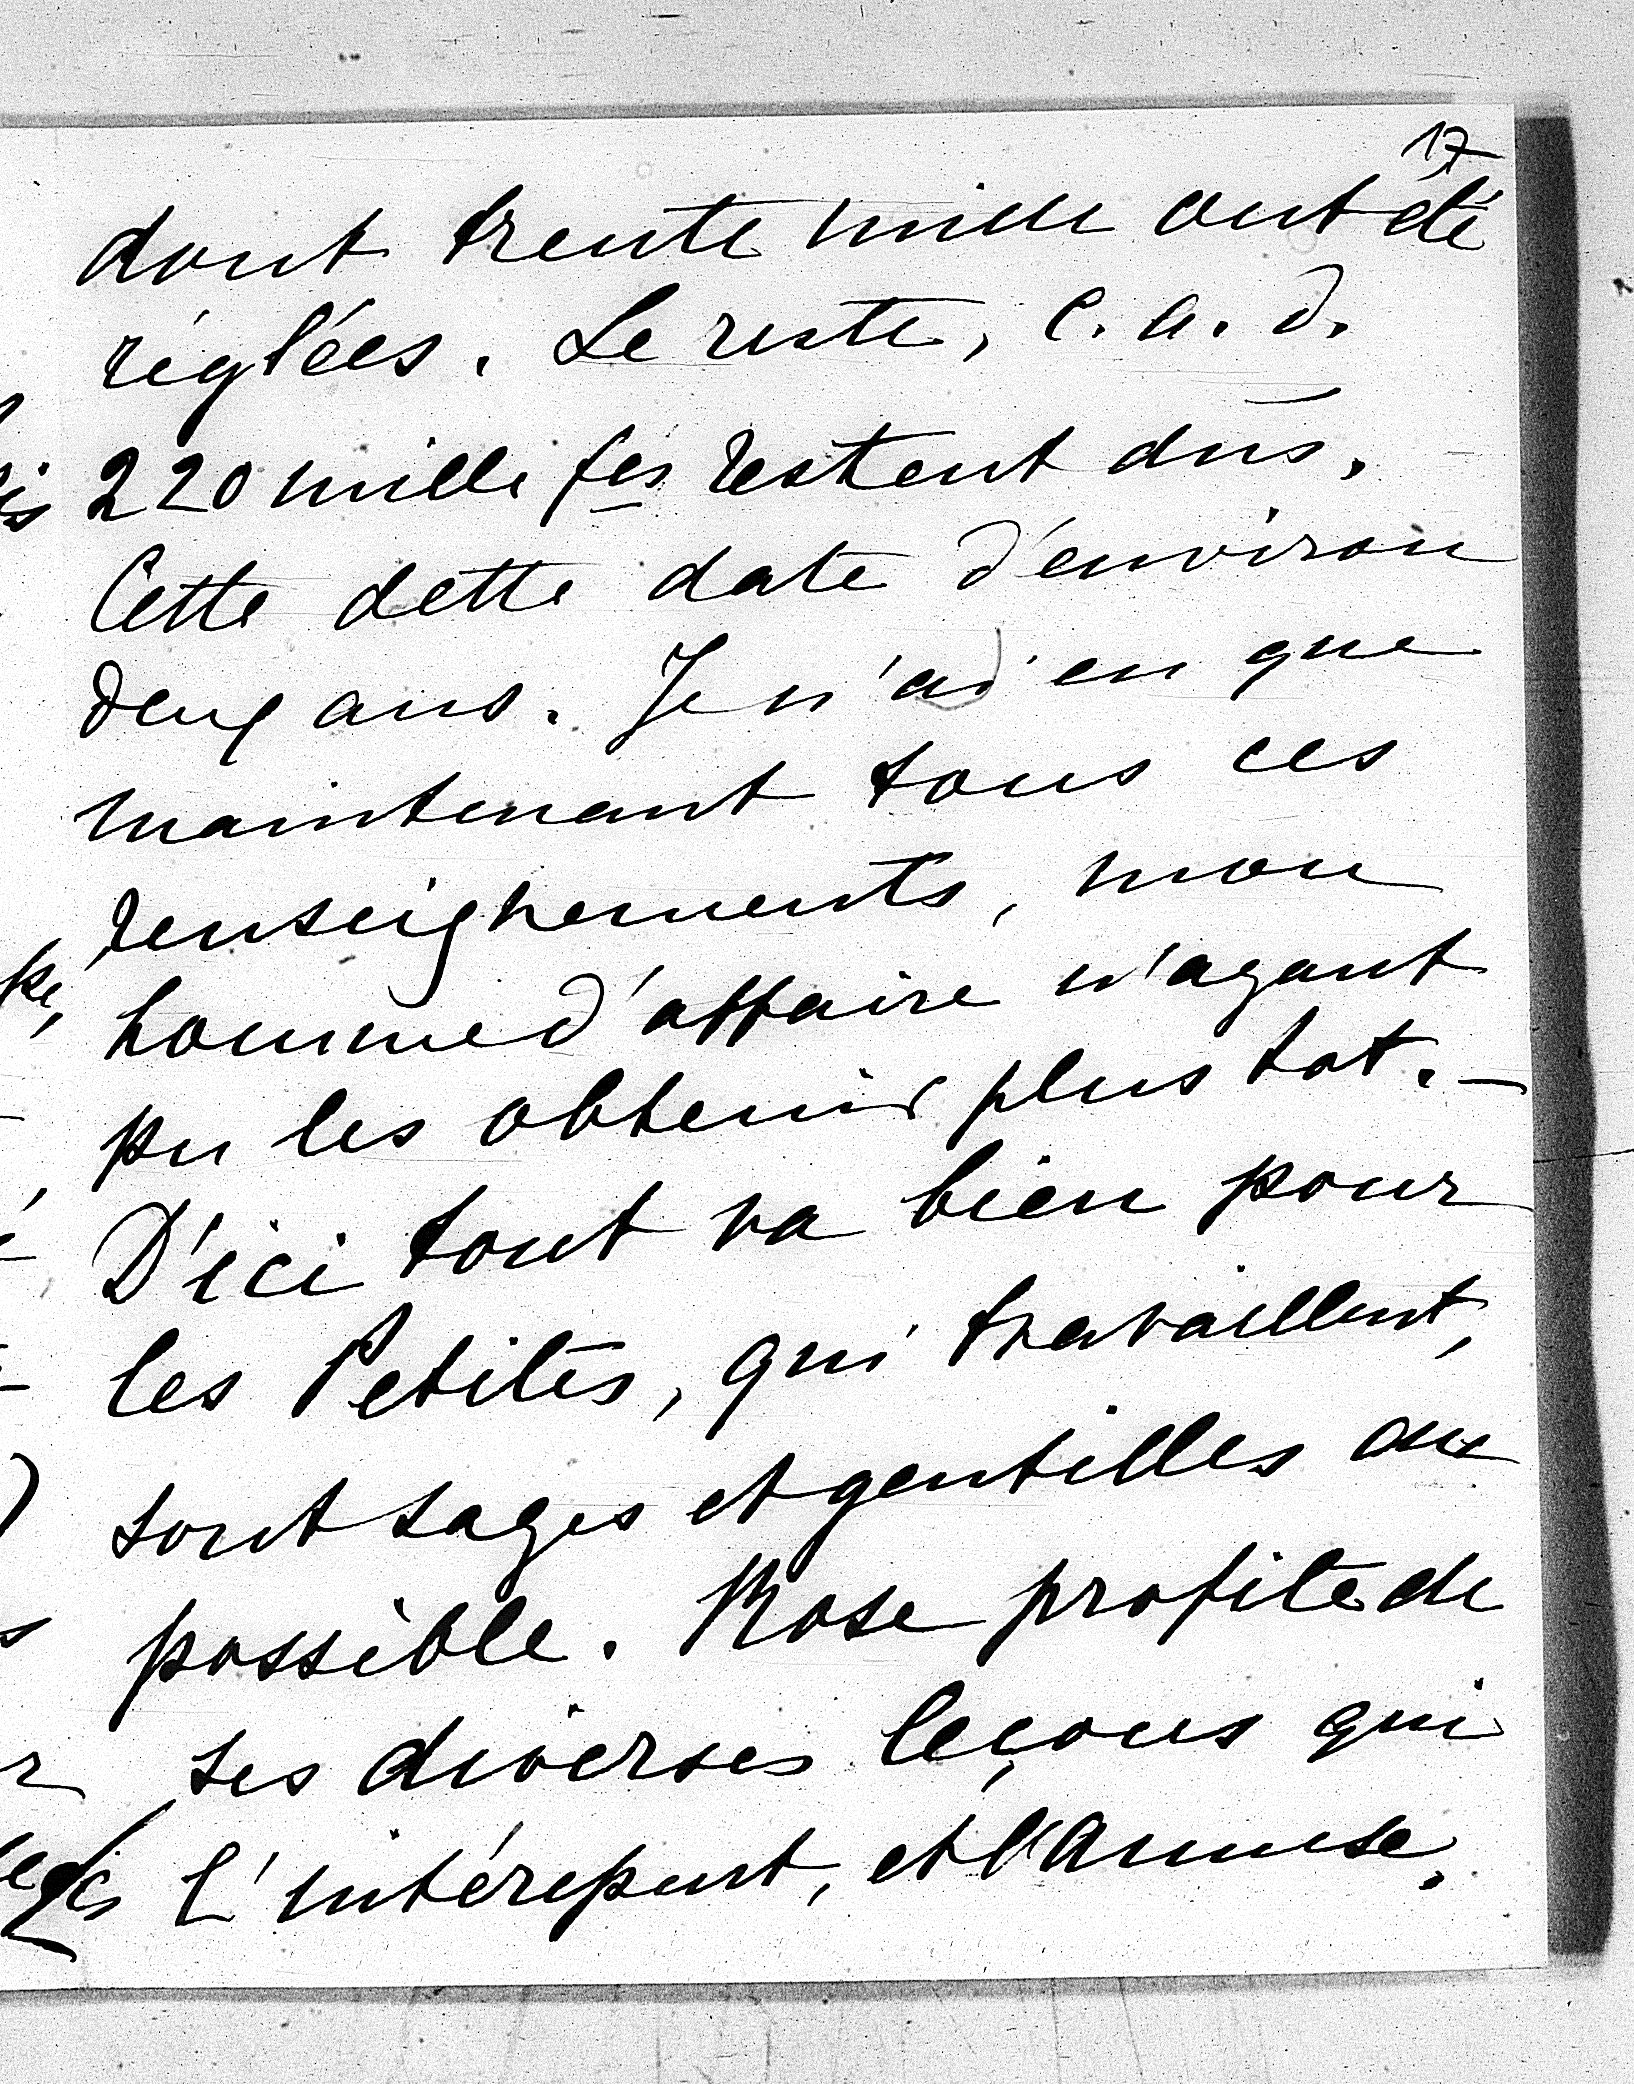 17
dont trente mille ont été
réglées. Le reste, c. a. d.
220 mille fcs restent dus.
Cette dette date d'environ
deux ans. Je n'ai eu que
maintenant tous ces
renseignements, mon
homme d'affaire n'ayant
pu les obtenir plus tot. —
D'ici tout va bien pour
les Petites, qui travaillent,
sont sages et gentilles au
possible. Rose profite de
ses diverses leçons qui
l'intéressent, et l'amuse.